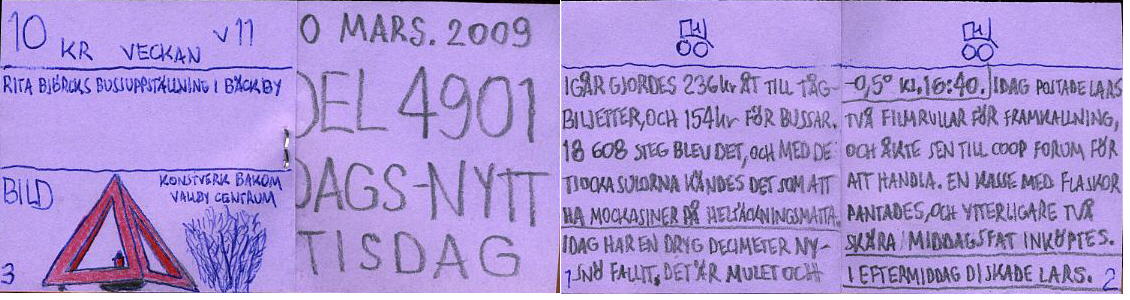 10 KR VECKAN V11
RITA BJÖRCKS BUSSUPPSTÄLLNING I BÄCKBY
BILD
KONSTVERK BAKOM
VALLBY CENTRUM
3
0 MARS. 2009
DEL 4901
DAGS-NYTT
TISDAG
IGÅR GJORDES 236kr ÅT TILL TÅG-
BILJETTER, OCH 154kr FÖR BUSSAR.
18 608 STEG BLEV DET, OCH MED DE
TJOCKA SULORNA KÄNDES DET SOM ATT
HA MOCKASINER PÅ HELTÄCKNINGSMATTA.
IDAG HAR EN DRYG DECIMETER NY-
SNÖ FALLIT, DET ÄR MULET OCH
1
-0,5° KL.16:40. IDAG POSTADE LARS
TVÅ FILMRULLAR FÖR FRAMKALLNING,
OCH ÅKTE SEN TILL COOP FORUM FÖR
ATT HANDLA. EN KASSE MED FLASKOR
PANTADES, OCH YTTERLIGARE TVÅ
SKÄRA MIDDAGSFAT INKÖPTES.
I EFTERMIDDAG DISKADE LARS.
2